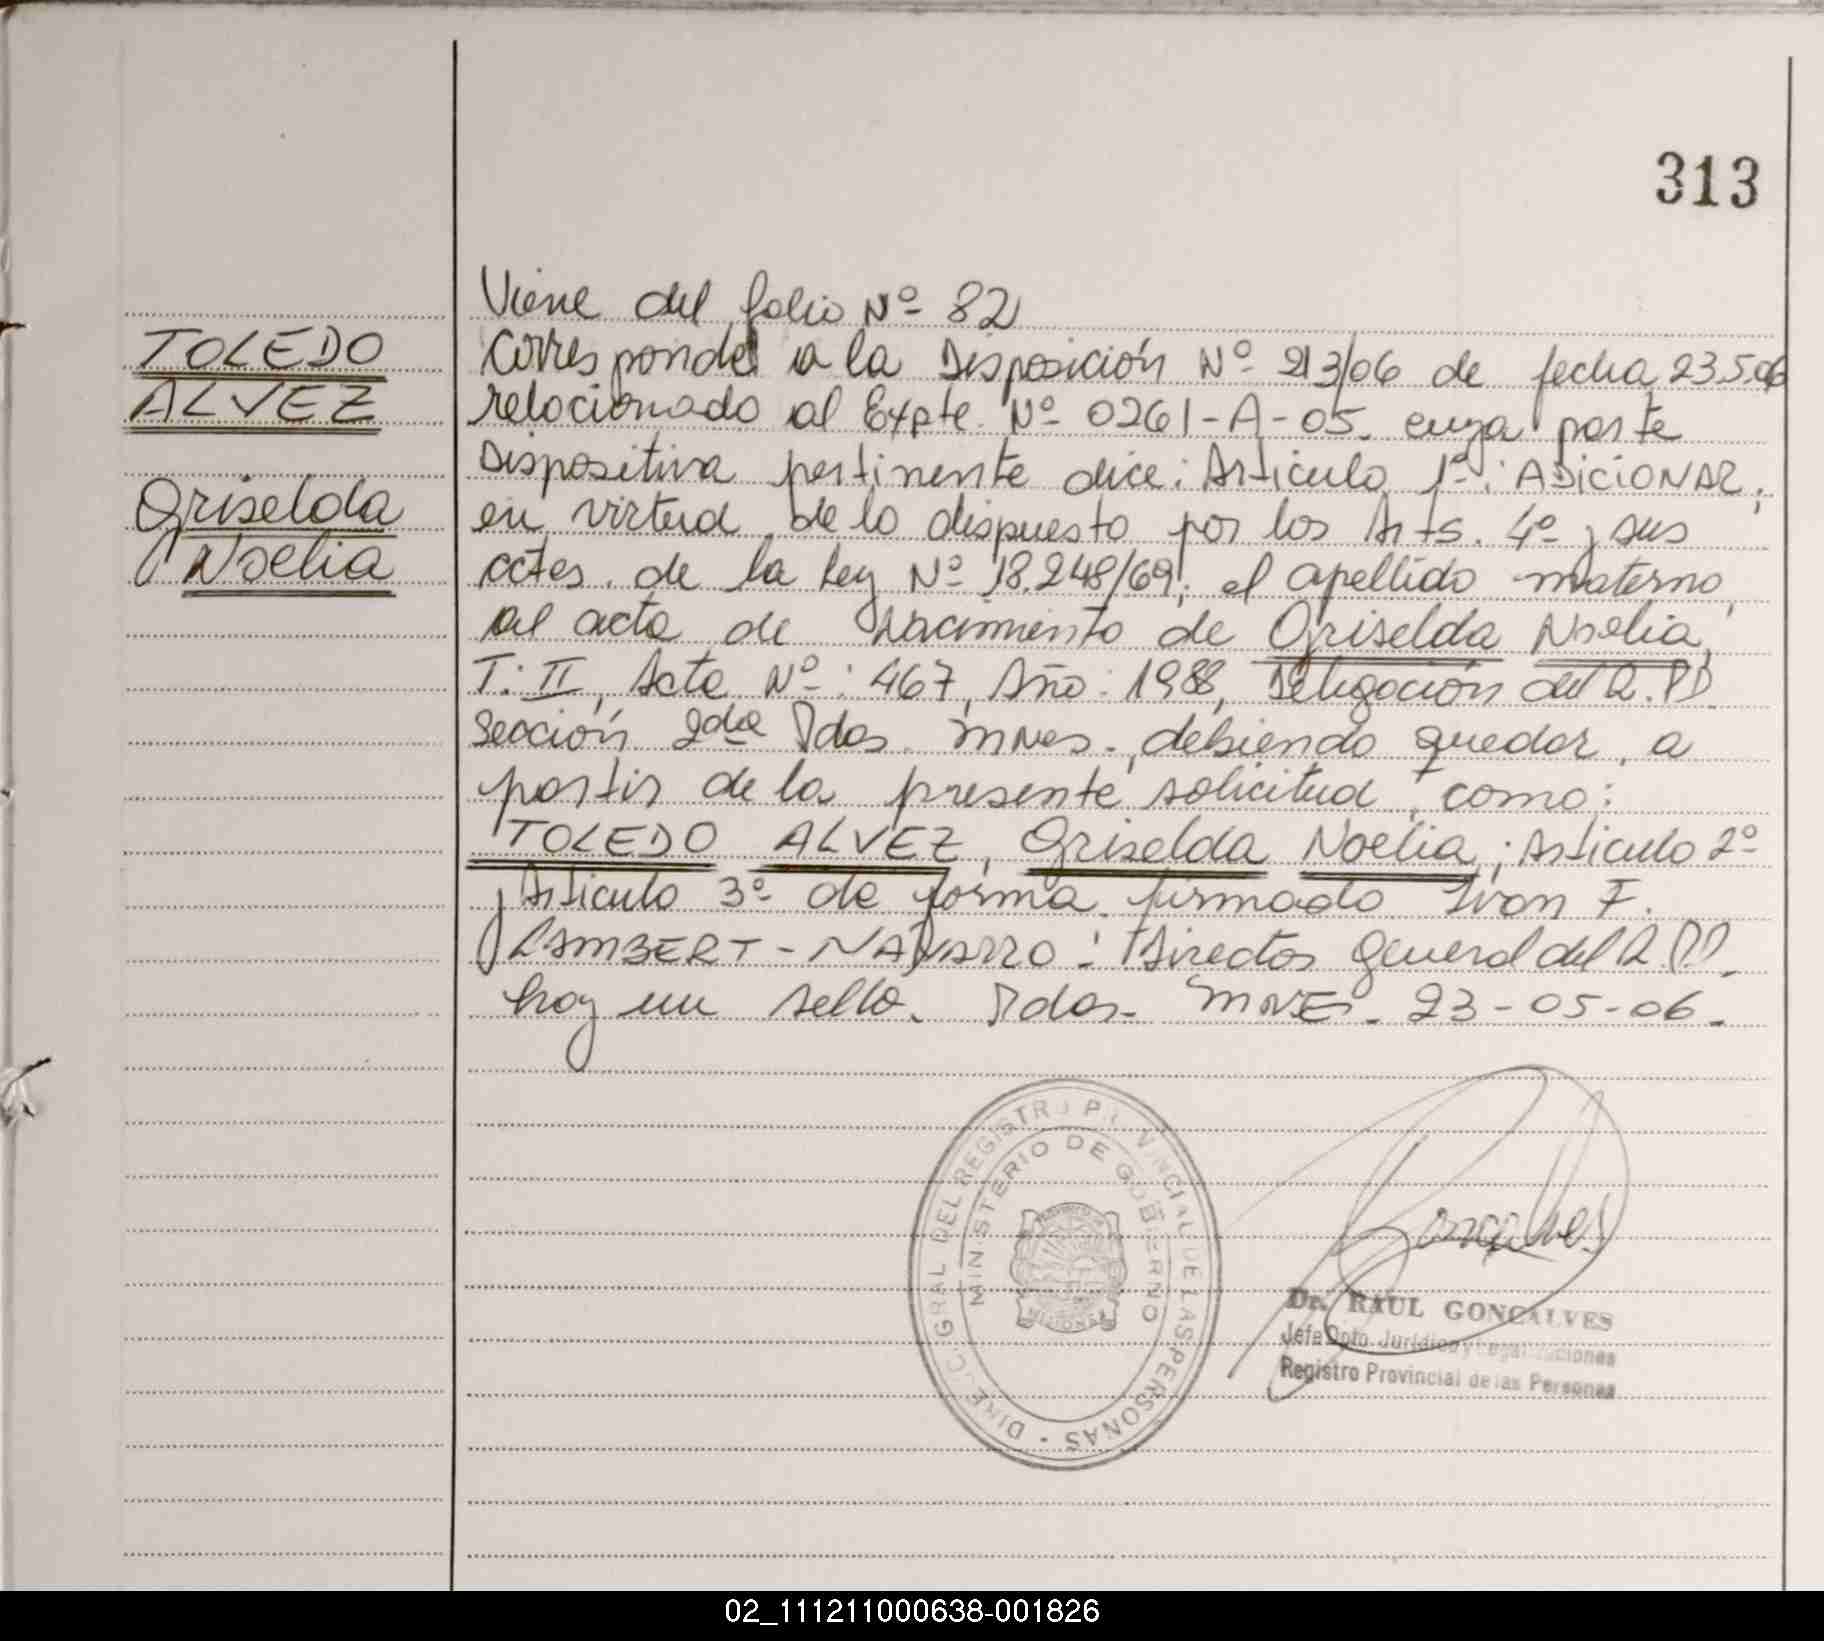 313
Viene del folio Nº 82
TOLEDO
ALVEZ
Griselda
Noelia
Corresponde a la Disposición Nº 213/06 de fecha 23.5.06
relacionado al Expte. Nº 0261-A-05. cuya parte
Dispositiva pertinente dice: Articulo 1º: ADICIONAR,
en virtud de lo dispuesto por los Arts. 4º y sus
cctes. de la Ley Nº 18.248/69; el apellido materno,
al acta de Nacimiento de Griselda Noelia,
T: II, Acta Nº: 467, Año: 1988, Delegación del R.PP.
Sección 2da Pdas. Mnes., debiendo quedar, a
partir de la presente solicitud, como:
TOLEDO ALVEZ, Griselda Noelia; Articulo 2º
y Articulo 3º de forma. firmado Ivan F.
LAMBERT-NAVARRO: Director General del R.PP.
hay un sello. Pdas. MNES. 23-05-06.
DIRECC. GRAL. DEL REGISTRO PROVINCIAL DE LAS PERSONAS
MINISTERIO DE GOBIERNO
MISIONES
Goncalves
Dr. RAUL GONCALVES
Jefe Dpto. Jurídico y Legalizaciones
Registro Provincial de las Personas
02_111211000638-001826